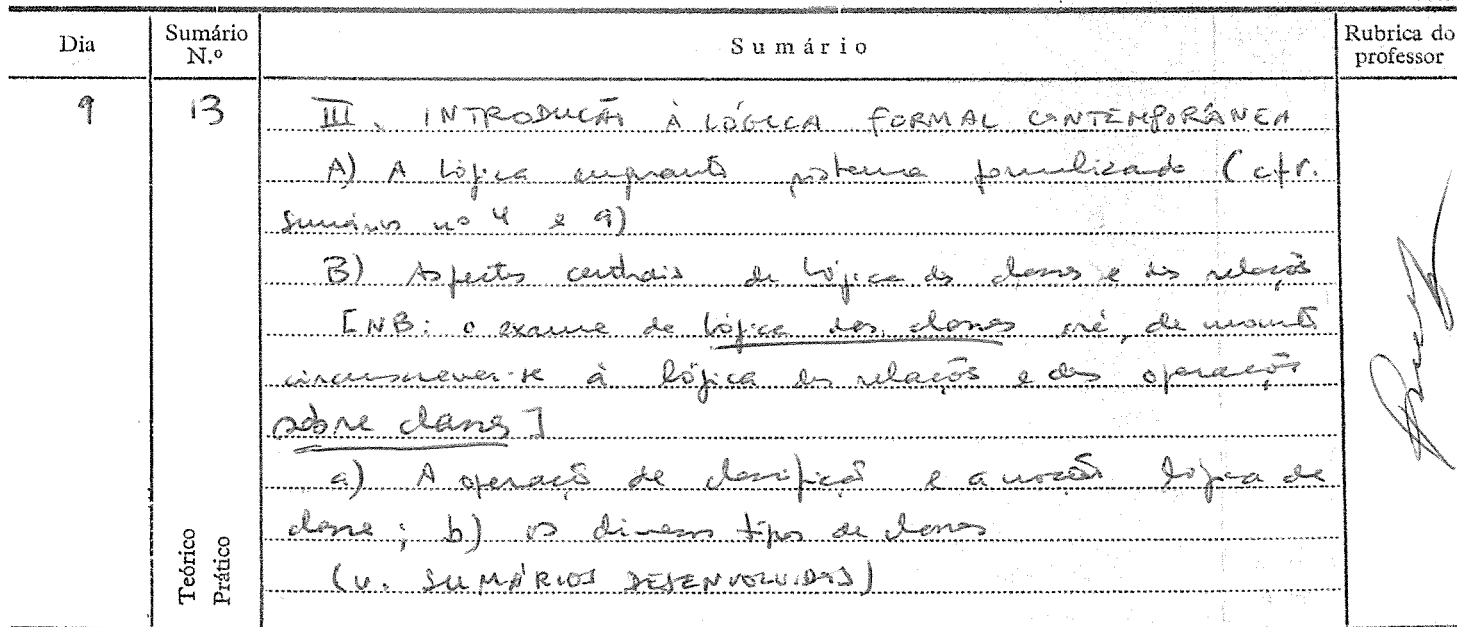 Dia
Sumário N.º
Sumário
Rubrica do professor
9
13
III. INTRODUÇÃO À LÓGICA FORMAL CONTEMPORÂNEA
A) A lógica enquanto sistema formalizado (cfr.
Sumários nº 4 e 9)
B) Aspectos centrais da lógica das classes e das relações
[NB: o exame da lógica das classes irá, de momento
circunscrever-se à lógica das relações e das operações
sobre classes]
a) A operação de classificação e a noção lógica de
classe; b) os diversos tipos de classes
(v. SUMÁRIOS DESENVOLVIDOS)
Teórico
Prático